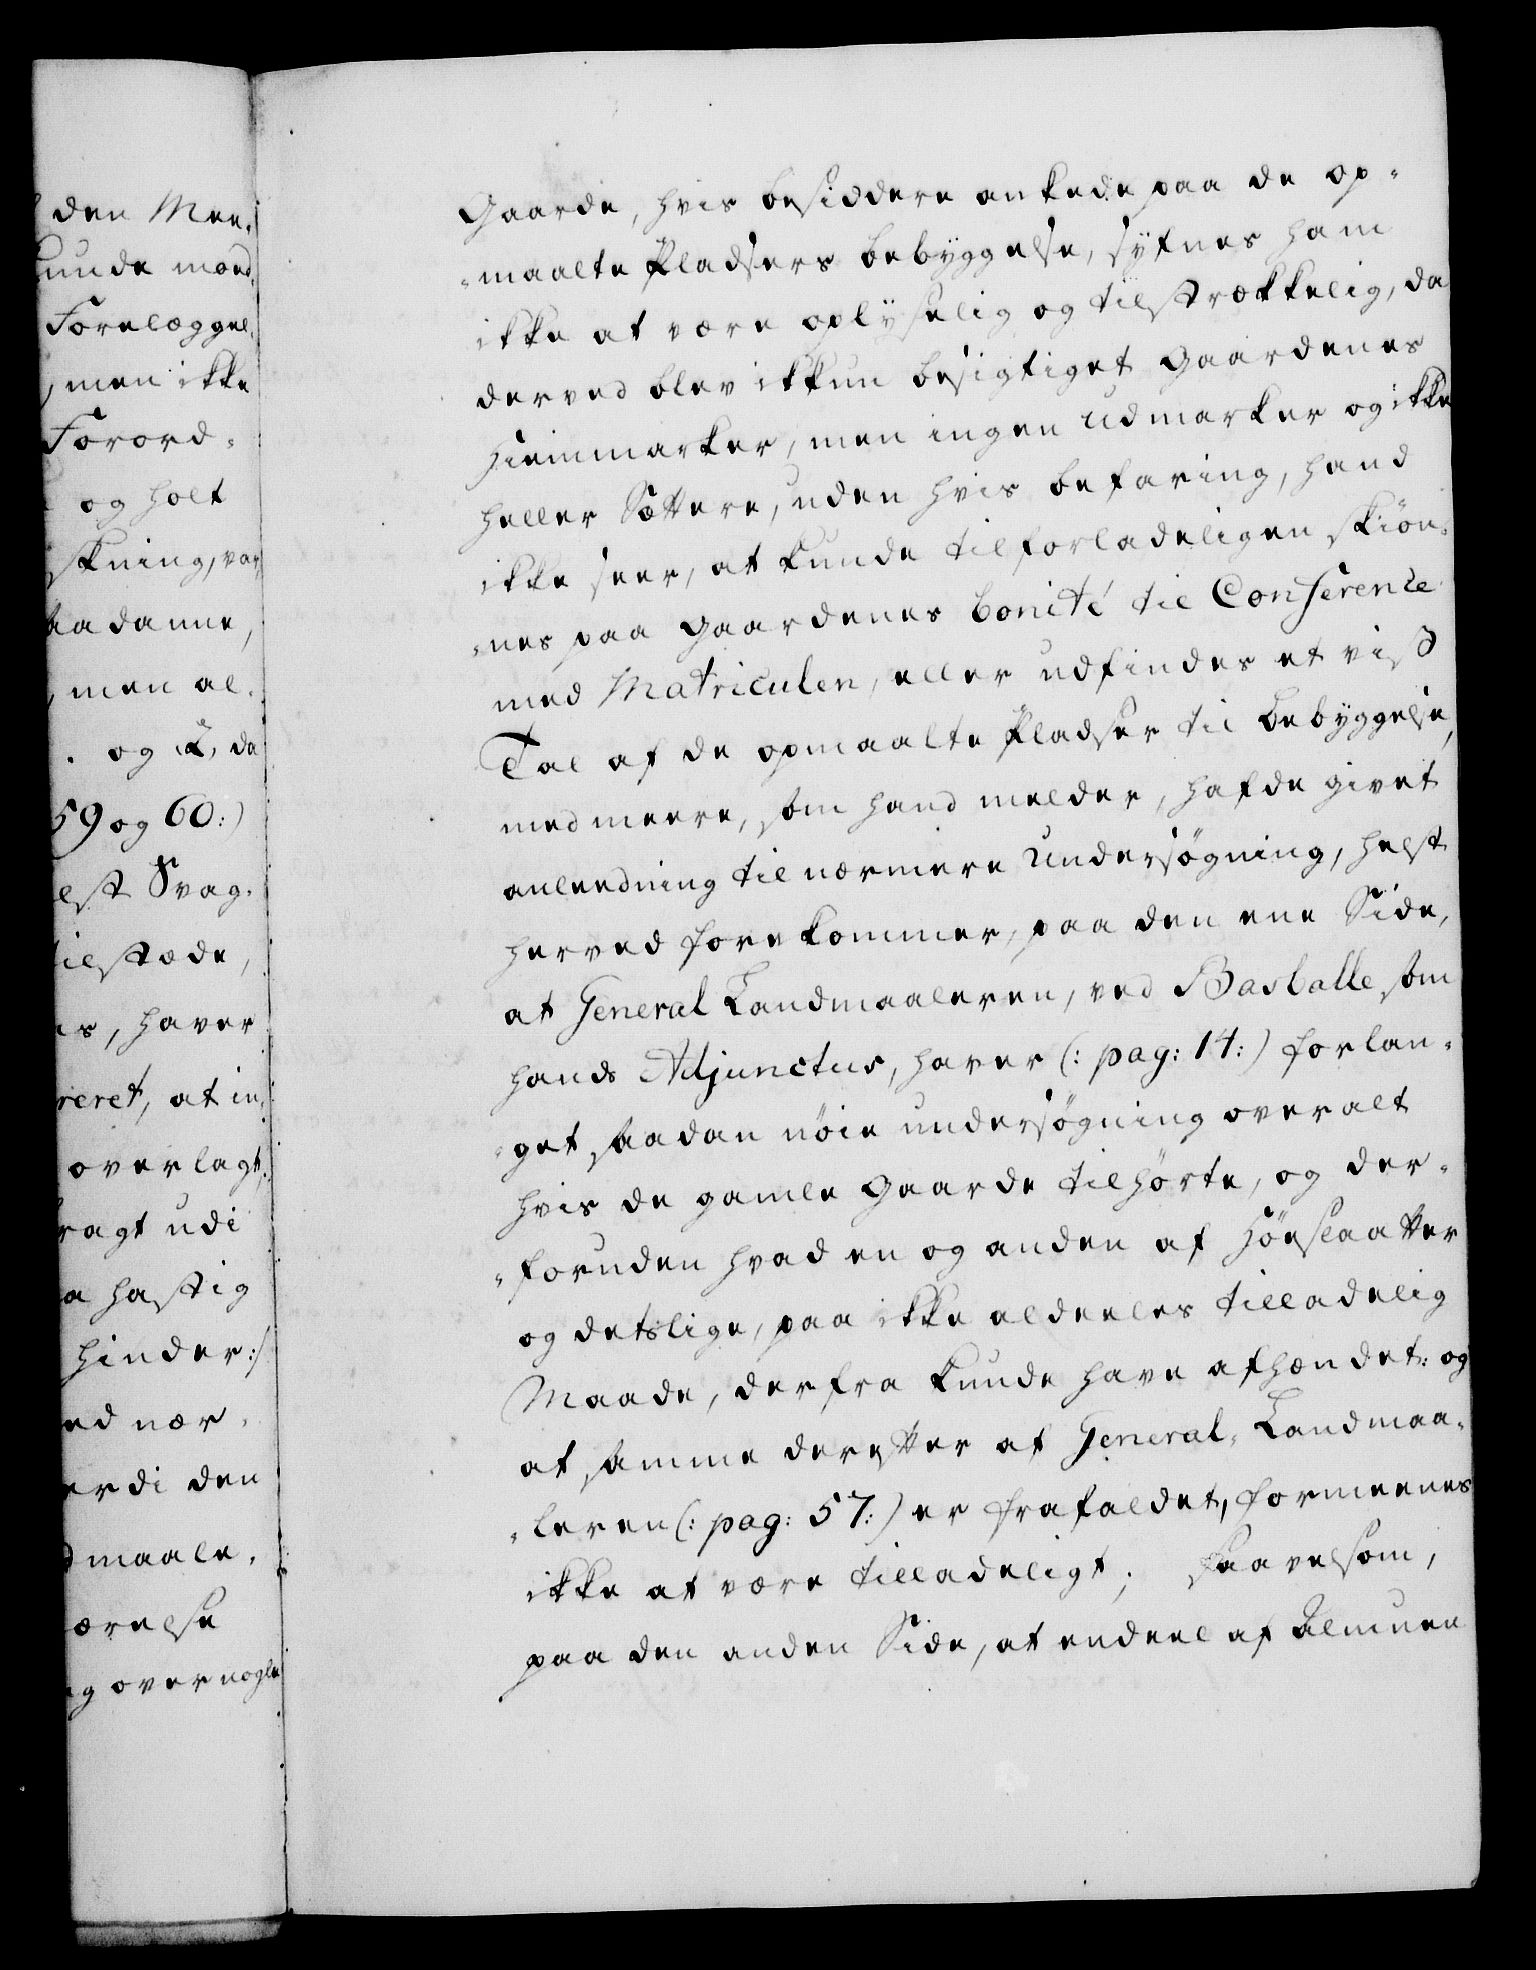 den Mee-
kunde mord
Forelæggel-
, men ikke
Forord-
og holt
skning, var
saadanne,
, men al-
. og R, da
59 og 60:)
elst Svag-
tilstæde,
es, haver
reret, at in-
overlagt,
bragt udi
a hastig
hinder:/
ed nær-
erdi den
dmaale,
ørelse
ng over nogle
Gaarde, hvis besiddere ankede paa de op-
-maalte Pladsers bebyggelse, syfnes ham
ikke at være oplyselig og tilstrækkelig, da
derved blev ikkun besigtiget Gaardenes
Hiemmarker, men ingen Udmarker og ikke
heller Sættere, uden hvis befaring, hand
ikke seer, at kunde tilforladeligen skiøn-
-nes paa Gaardenes bonité til Conference
med Matriculen, eller udfindes et viss
Tal af de opmaalte Pladser til bebyggelse,
med meere, som hand melder, hafde givet
anleedning til nærmere Undersøgning, helst
herved forekommer, paa den ene Side,
at General Landmaaleren, ved Basballe som
hands Adjunctus, haver (: pag: 14:) forlan-
-get saadan nøie undersøgning overalt
hvis de gamle Gaarde tilhørte, og der-
-foruden hvad en og anden af Høeslaatter
og detslige, paa ikke aldeeles tilladelig
Maade, derfra kunde have afhændet: og
at samme derefter af General-Landmaa-
-leren (: pag: 57:) er frafaldet, formeenes
ikke at være tilladeligt; saavelsom,
paa den anden Side, at endeel af Almuen